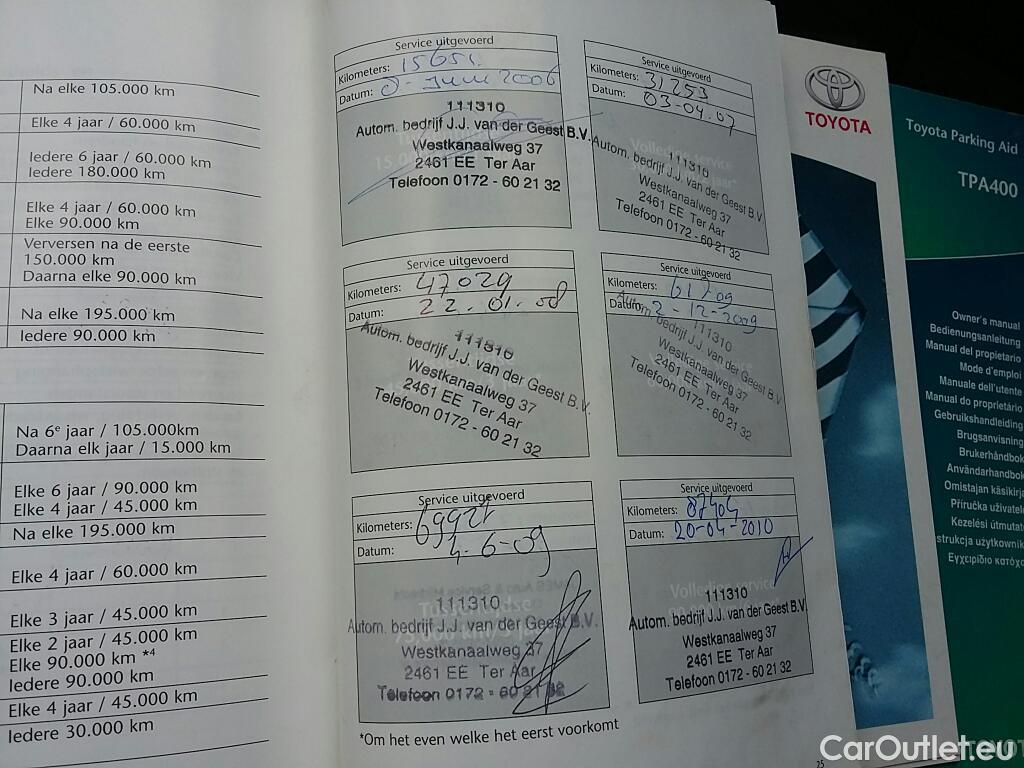 Na elke 105.000 km
Elke 4 jaar / 60.000 km
Iedere 6 jaar / 60.000 km
Iedere 180.000 km
Elke 4 jaar / 60.000 km
Elke 90.000 km
Verversen na de eerste
150.000 km
Daarna elke 90.000 km
Na elke 195.000 km
Iedere 90.000 km
Na 6e jaar / 105.000km
Daarna elk jaar / 15.000 km
Elke 6 jaar / 90.000 km
Elke 4 jaar / 45.000 km
Na elke 195.000 km
Elke 4 jaar / 60.000 km
Elke 3 jaar / 45.000 km
Elke 2 jaar / 45.000 km
Elke 90.000 km *4
Iedere 90.000 km
Elke 4 jaar / 45.000 km
Iedere 30.000 km
Service uitgevoerd
Kilometers: 15651.
Datum: Juni 2006
111310
Autom. bedrijf J.J. van der Geest B.V.
Westkanaalweg 37
2461 EE Ter Aar
Telefoon 0172 - 60 21 32
Service uitgevoerd
Kilometers: 31253
Datum: 03-04.07
Volledige service
111310
Autom. bedrijf J.J. van der Geest B.V.
Westkanaalweg 37
2461 EE Ter Aar
Telefoon 0172 - 60 21 32
Service uitgevoerd
Kilometers: 47029
Datum: 22.01.08
111310
Autom. bedrijf J.J. van der Geest B.V.
Westkanaalweg 37
2461 EE Ter Aar
Telefoon 0172 - 60 21 32
Service uitgevoerd
Kilometers: 61709
Datum: 2-12-2009
111310
Autom. bedrijf J.J. van der Geest B.V.
Westkanaalweg 37
2461 EE Ter Aar
Telefoon 0172 - 60 21 32
Service uitgevoerd
Kilometers: 69927
Datum: 4-6-09
111310
Autom. bedrijf J.J. van der Geest B.V.
Westkanaalweg 37
2461 EE Ter Aar
Telefoon 0172 - 60 21 32
Service uitgevoerd
Kilometers: 87404
Datum: 20-04-2010
Volledige service
111310
Autom. bedrijf J.J. van der Geest B.V.
Westkanaalweg 37
2461 EE Ter Aar
Telefoon 0172 - 60 21 32
*Om het even welke het eerst voorkomt
25
TOYOTA
Toyota Parking Aid
TPA400
Owner's manual
Bedienungsanleitung
Manual del propietario
Mode d'emploi
Manuale dell'utente
Manual do proprietário
Gebruikshandleiding
Brugsanvisning
Brukerhåndbok
Användarhandbok
Omistajan käsikirja
Příručka uživatele
Kezelési útmutató
strukcja użytkownik
Εγχειρίδιο κατόχο
TOYOTA
CarOutlet.eu